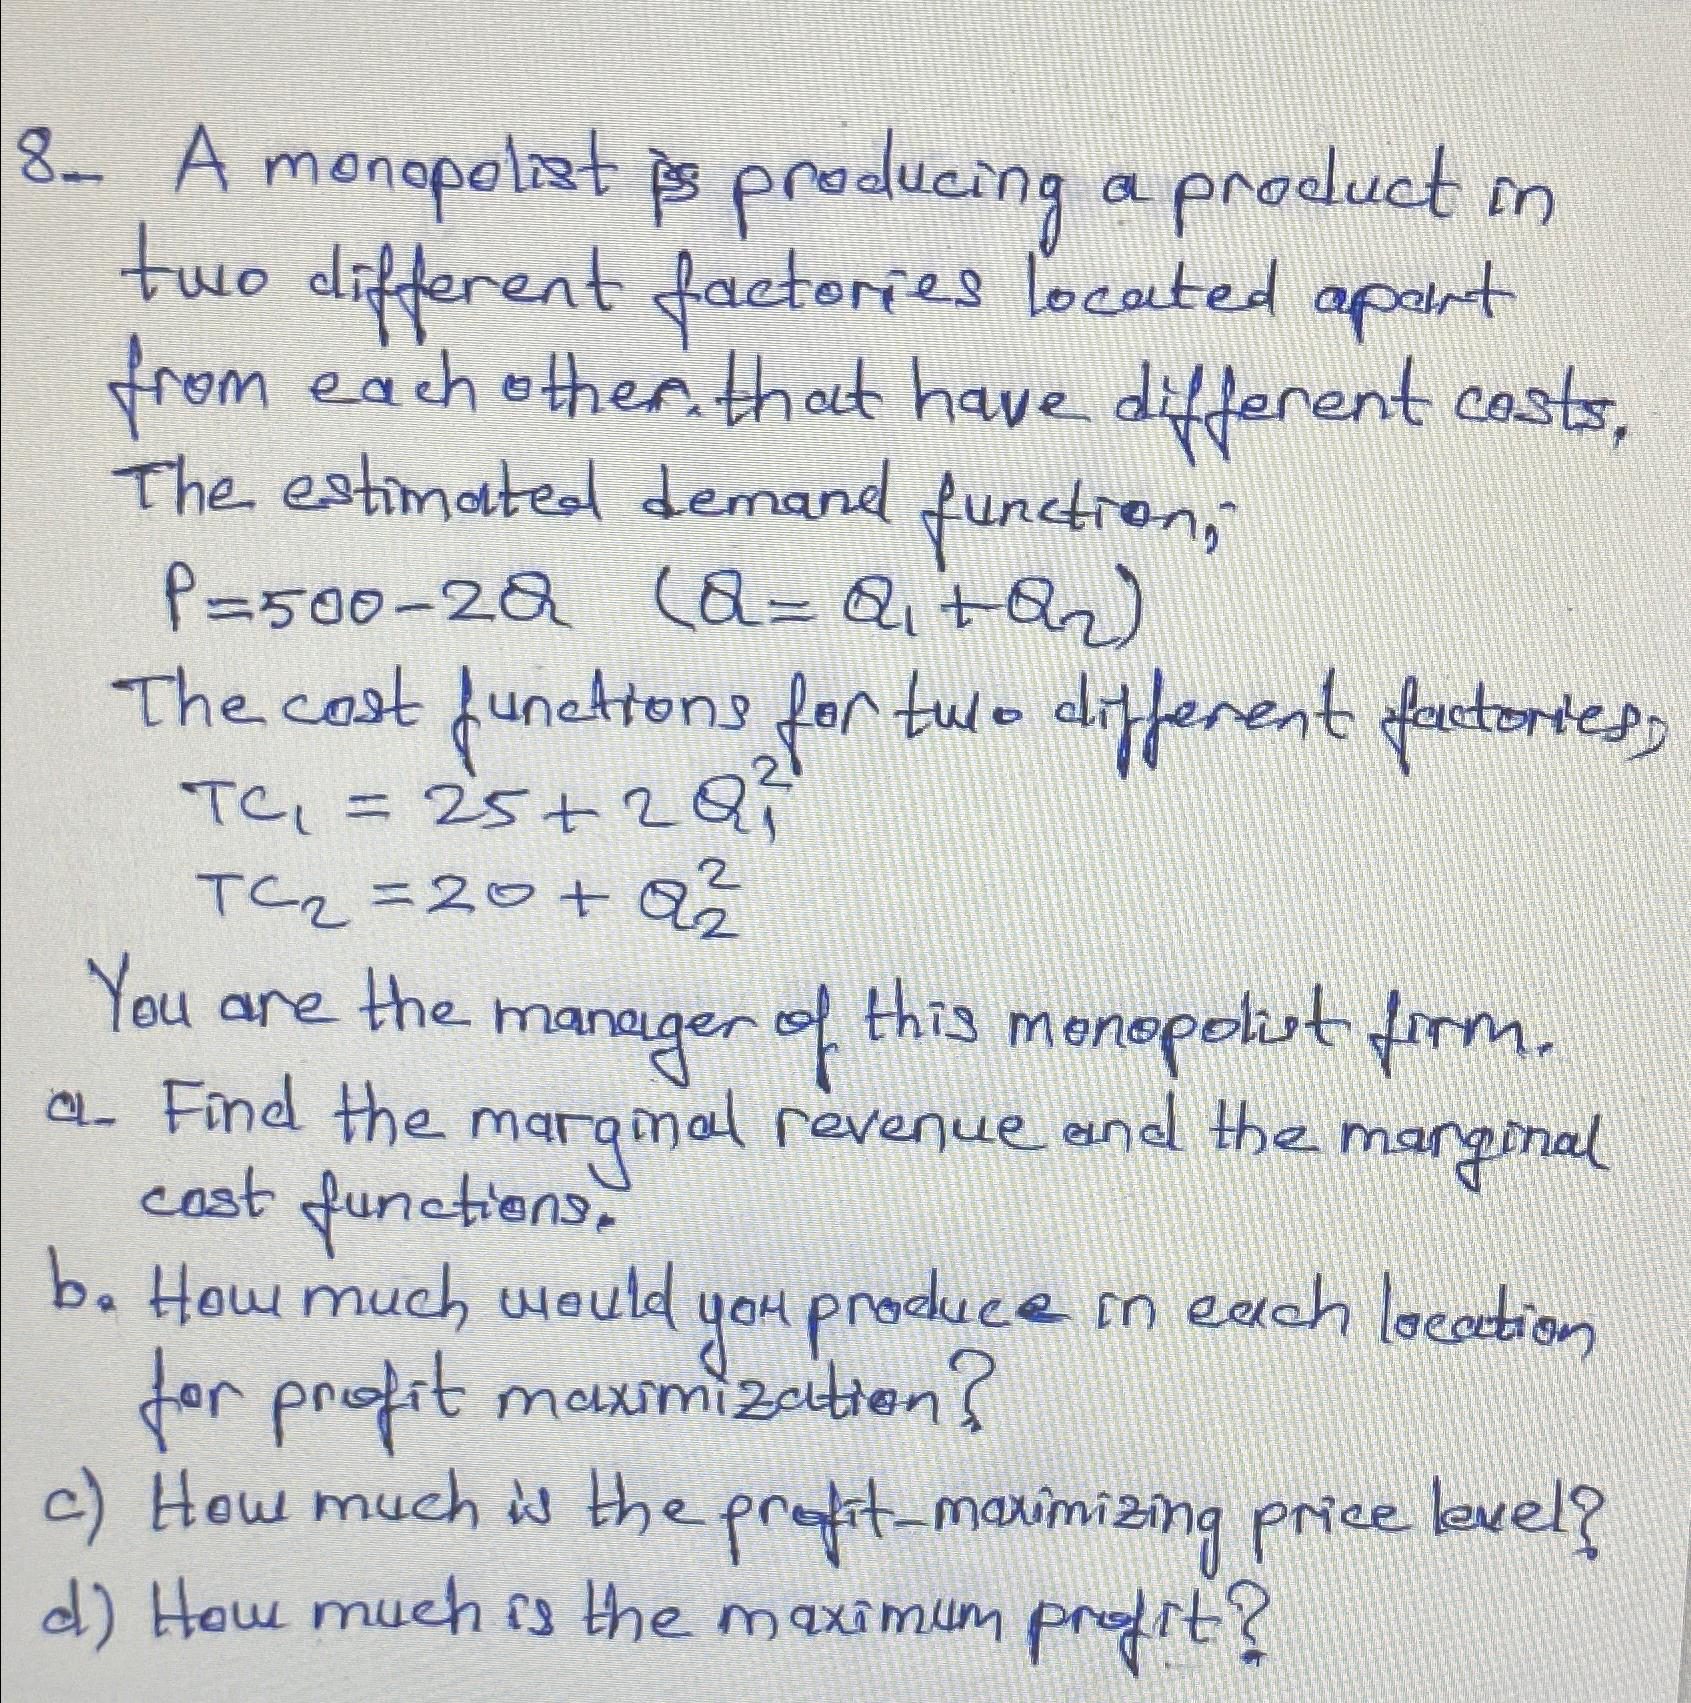 8- A monopolist is producing a product in
two different factories located apart
from each other. that have different costs.
The estimated demand function;
P=500-2Q (Q= Q₁+Q₂)
The cost functions for two different factories;
TC₁ = 25+2Q₁²
TC₂ =20+ Q₂²
You are the manager of this monopolist firm.
a- Find the marginal revenue and the marginal
cost functions.
b. How much would you produce in each location
for profit maximization?
c) How much is the profit-maximizing price level?
d) How much is the maximum profit?